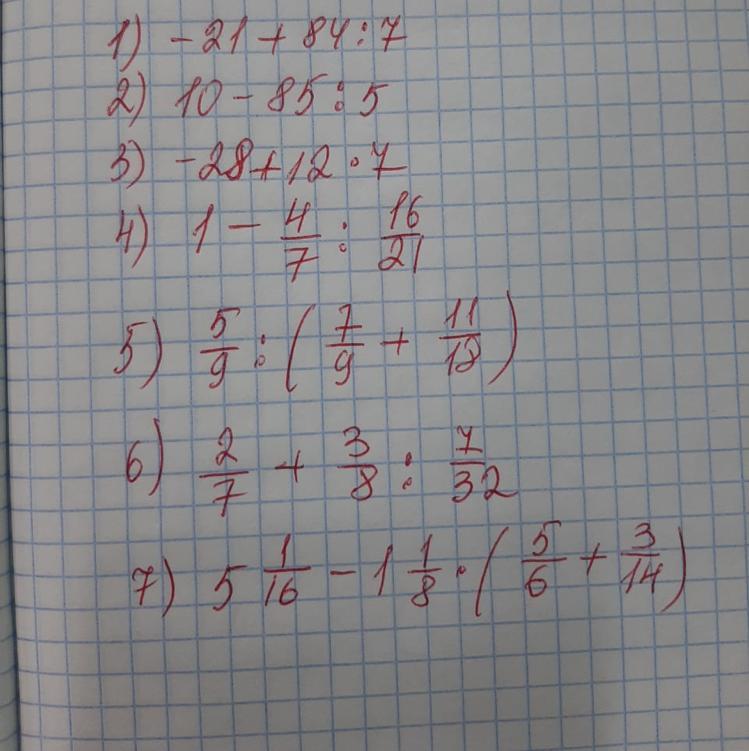 1) -21 + 84 : 7
2) 10 - 85 : 5
3) -28 + 12 · 7
4) 1 - 4/7 : 16/21
5) 5/9 : (7/9 + 11/12)
6) 2/7 + 3/8 : 7/32
7) 5 1/16 - 1 1/8 · (5/6 + 3/14)